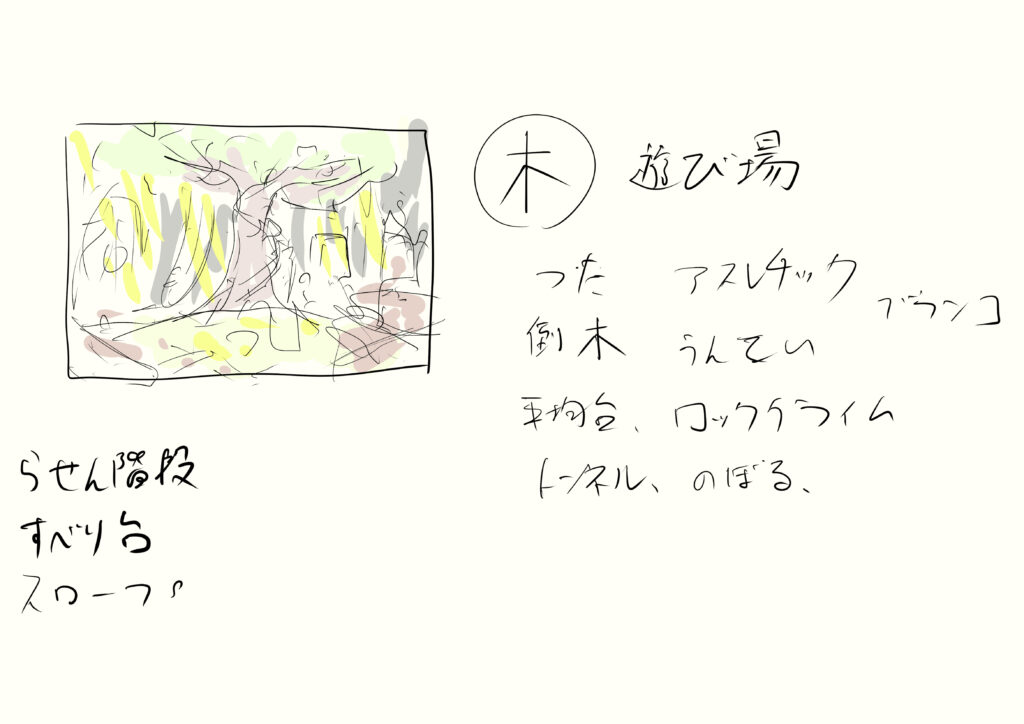 木 遊び場
つた アスレチック ブランコ
倒木 うんてい
平均台、ロッククライム
トンネル、のぼる、
らせん階段
すべり台
スロープ